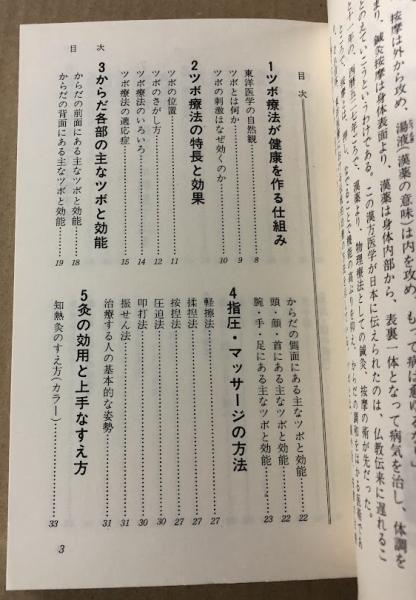 按摩は外から攻め、湯液(漢薬の意味)は内を攻め、もって病は愈
まり、鍼灸按摩は身体表面より、漢薬は身体内部から、表裏一体となって病気を治し、体調を
とのえていこうというわけである。この漢方医学が日本に伝えられたのは、仏教伝来に遅れるこ
漢薬より、物理療法としての鍼灸、按摩の術が先だった。
目次
1 ツボ療法が健康を作る仕組み
東洋医学の自然観 8
ツボとは何か 9
ツボの刺激はなぜ効くのか 10
2 ツボ療法の特長と効果
ツボの位置 11
ツボのさがし方 12
ツボ療法のいろいろ 14
ツボ療法の適応症 15
3 からだ各部の主なツボと効能
からだの前面にある主なツボと効能 18
からだの背面にある主なツボと効能 19
からだの側面にある主なツボと効能 22
頭・顔・首にある主なツボと効能 22
腕・手・足にある主なツボと効能 23
4 指圧・マッサージの方法
軽擦法 27
揉捏法 27
按捏法 27
圧迫法 30
叩打法 30
振せん法 31
治療する人の基本的な姿勢 31
5 灸の効用と上手なすえ方
知熱灸のすえ方(カラー) 33
目次
3